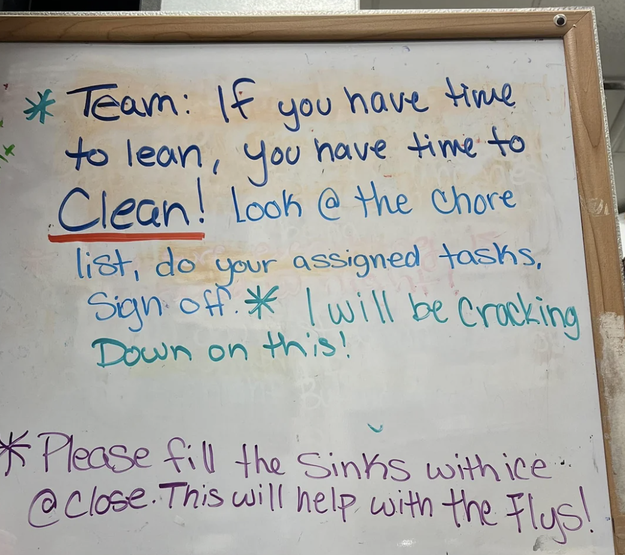 * Team: If you have time
to lean, you have time to
Clean! Look @ the chore
list, do your assigned tasks,
Sign off. * I will be Cracking
Down on this!
* Please fill the Sinks with ice
@ Close. This will help with the Flys!